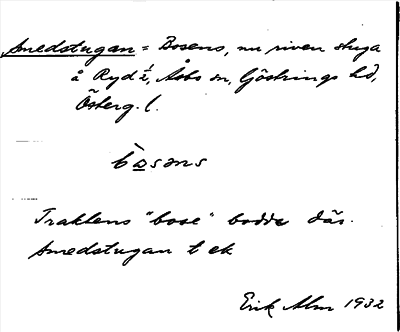 Smedstugan = Bosens, nu riven stuga
å Ryd ½, Åsbo sn, Göstrings hd,
Österg. l.
bòsəns
Traktens "bose" bodde där.
Smedstugan t ek
Erik Alm 1932